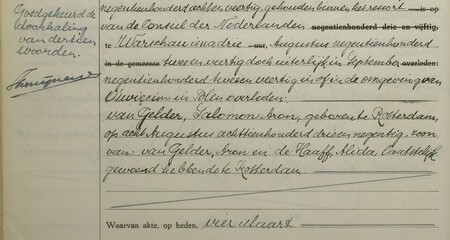 Goedgekeurd de
doorhaling
van dertien
woorden.
negentienhonderd acht en veertig, gehouden binnen het ressort is op
van de Consul der Nederlanden negentienhonderd drie en vijftig,
te Warschau is na drie uur, Augustus negentienhonderd
in de gemeente twee en veertig doch uiterlijk in September overleden:
negentienhonderd twee en veertig in of in de omgeving van
Oswiecim in Polen overleden:
van Gelder, Salomon Aron, geboren te Rotterdam,
op acht Augustus achttienhonderd drie en negentig, zoon
van: van Gelder, Aron en de Haaff, Alida, laatstelijk
gewoond hebbende te Rotterdam
Waarvan akte, op heden, vier Maart